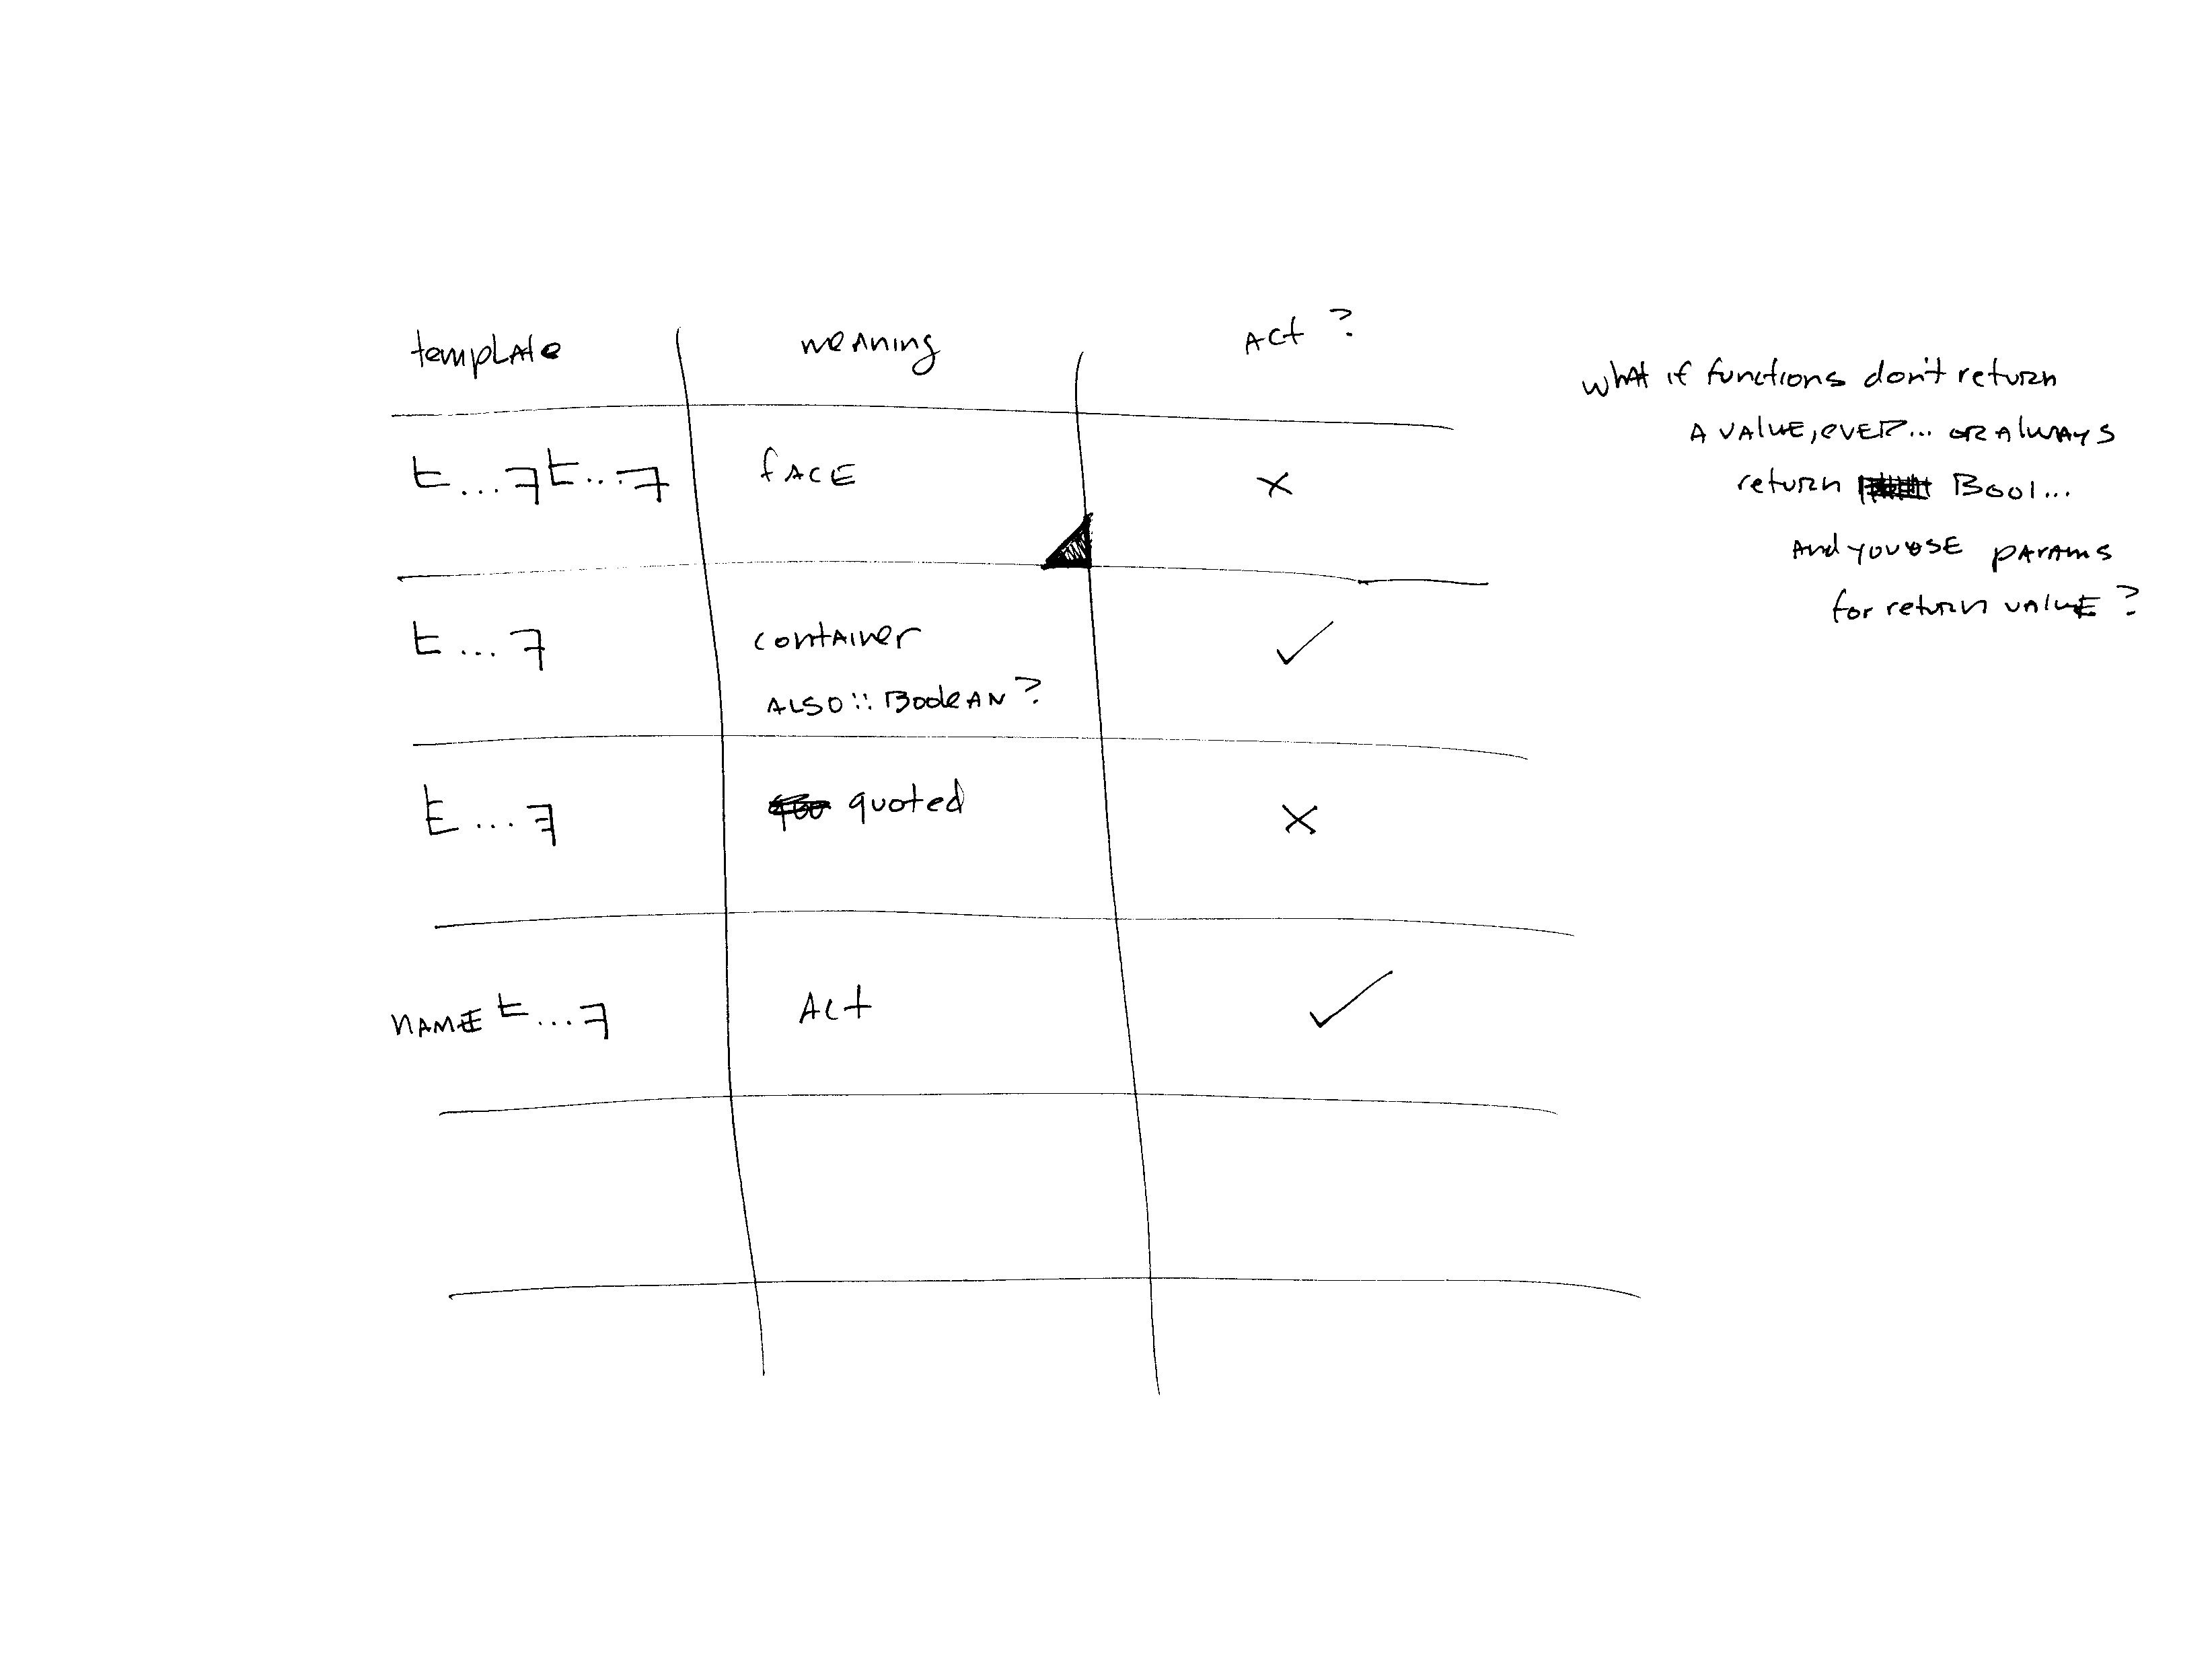 template meaning ACt ?
E...7 E...7 fACE ×
E...7 container ✓
ALSO:: BooleAN?
E...7 quoted ×
NAME E...7 Act ✓
whAt if functions don't return
A VALUE, EVER... OR AlwAYS
return Bool...
And you USE pArAms
for return vAlUE ?